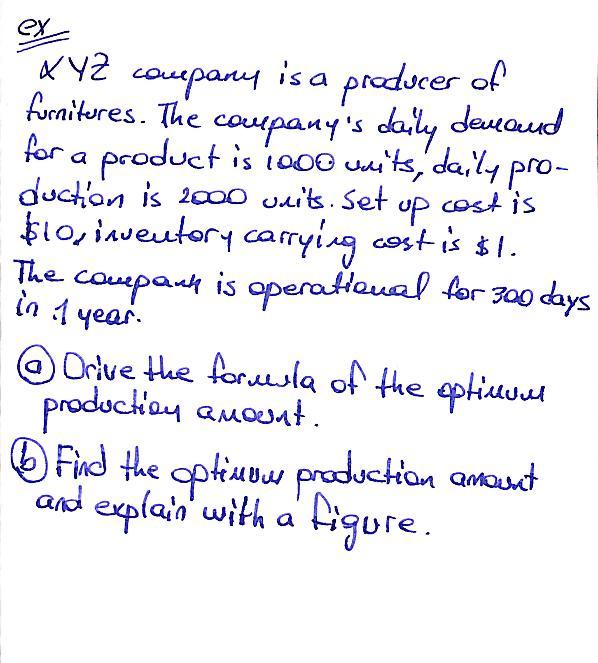 ex
XYZ company is a producer of
furnitures. The company's daily demand
for a product is 1000 units, daily pro-
duction is 2000 units. Set up cost is
$10, inventory carrying cost is $1.
The company is operational for 300 days
in 1 year.
(a) Drive the formula of the optimum
production amount.
(b) Find the optimum production amount
and explain with a figure.